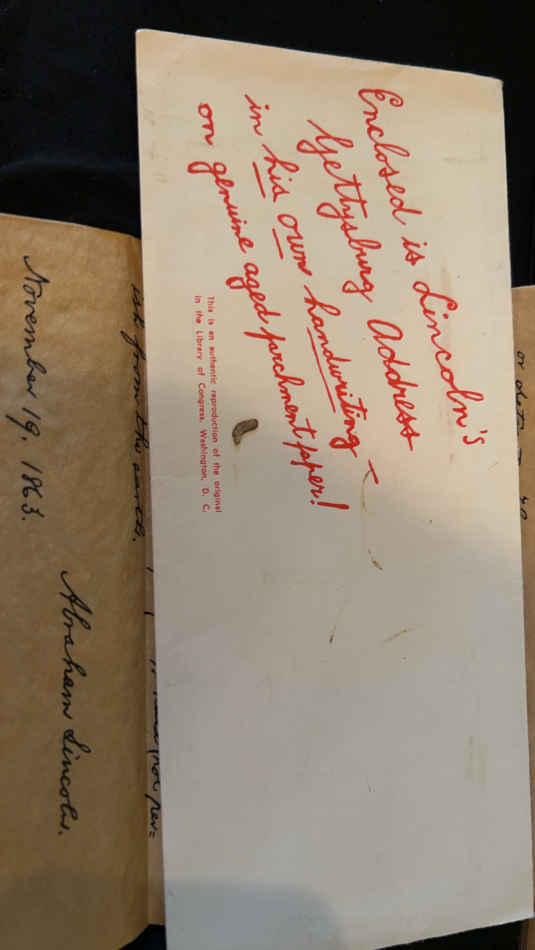 Enclosed is Lincoln's
Gettysburg Address
in his own handwriting –
on genuine aged parchment paper!
This is an authentic reproduction of the original
in the Library of Congress, Washington, D. C.
or
ish from the earth.
per=
Abraham Lincoln.
November 19, 1863.